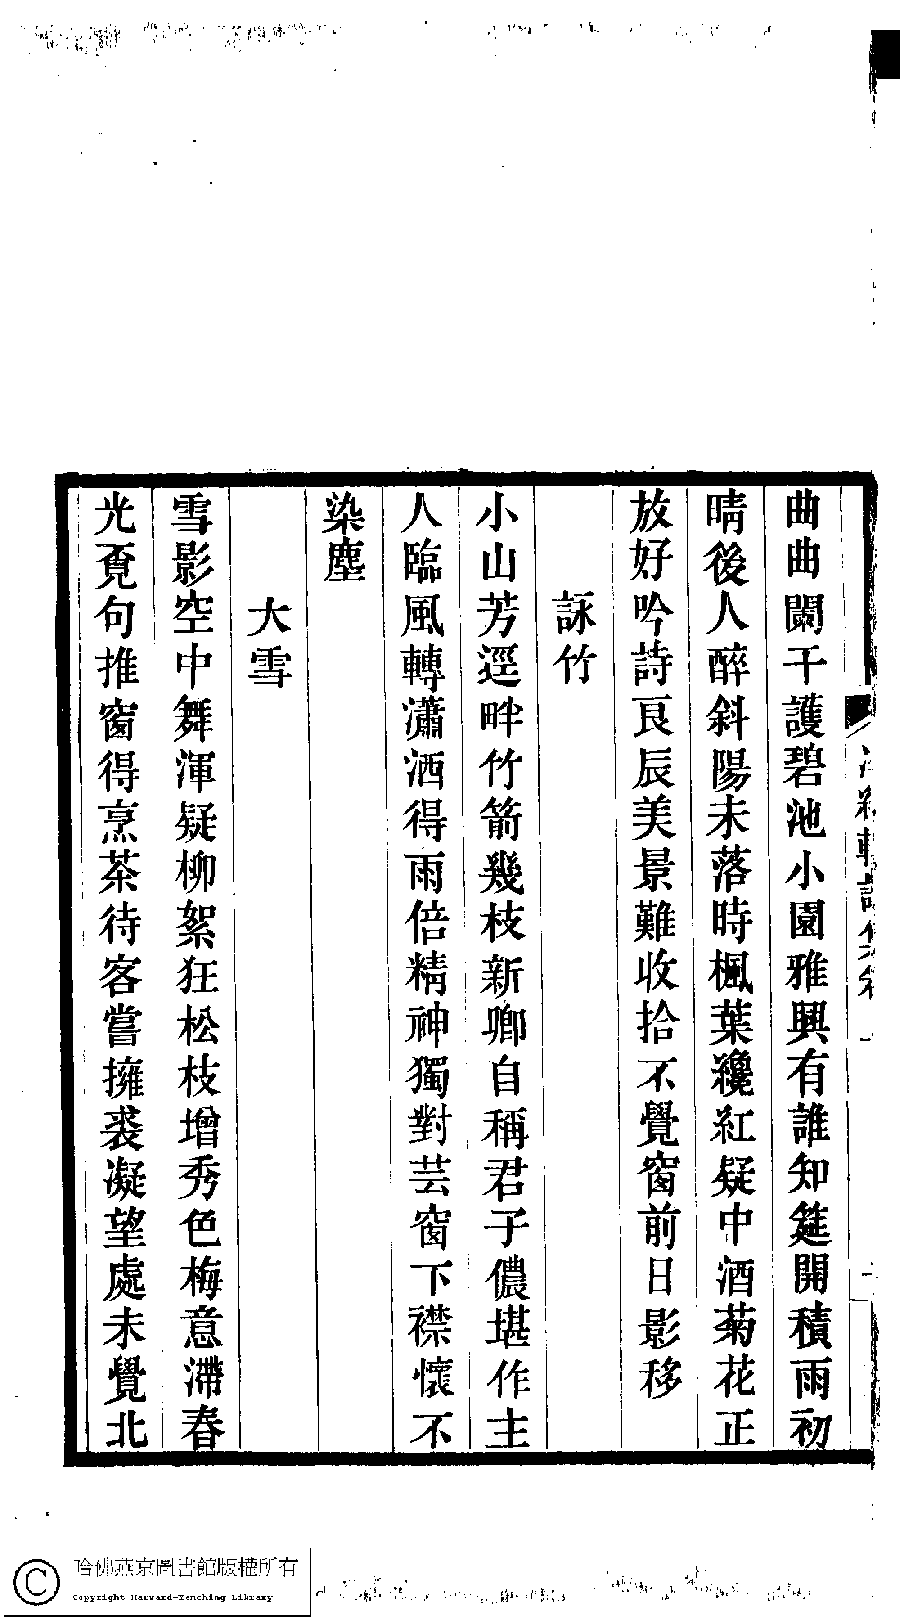 曲曲闌干護碧池小園雅興有誰知筵開積雨初
晴後人醉斜陽未落時楓葉纔紅疑中酒菊花正
放好吟詩良辰美景難收拾不覺窗前日影移
詠竹
小山芳逕畔竹箭幾枝新卿自稱君子儂堪作主
人臨風轉瀟洒得雨倍精神獨對芸窗下襟懷不
染塵
大雪
雪影空中舞渾疑柳絮狂松枝增秀色梅意滯春
光覓句推窗得烹茶待客嘗擁裘凝望處未覺北
哈佛燕京圖書館版權所有
Copyright Harvard-Yenching Library